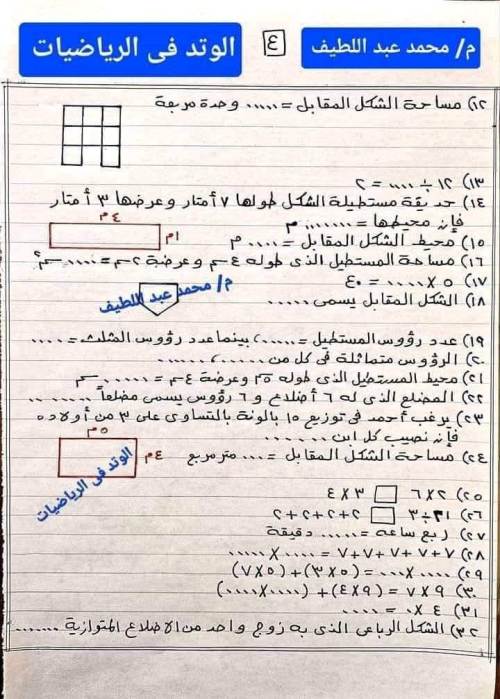 م/ محمد عبد اللطيف
٤
الوتد فى الرياضيات
١٢) مساحة الشكل المقابل = ..... وحدة مربعة
١٣) ١٢ ÷ .... = ٢
١٤) حديقة مستطيلة الشكل طولها ٧ أمتار وعرضها ٣ أمتار
فإن محيطها = ....... م
٤م
١م
١٥) محيط الشكل المقابل = .... م
١٦) مساحة المستطيل الذى طوله ٤سم وعرضة ٢سم = ..... سم٢
١٧) ٥ × .... = ٤٠
م/ محمد عبد اللطيف
١٨) الشكل المقابل يسمى .....
١٩) عدد رؤوس المستطيل = ..... ، بينما عدد رؤوس المثلث = ....
٢٠) الرؤوس متماثلة فى كل من ..... ، ......
٢١) محيط المستطيل الذى طوله ٥سم وعرضة ٤سم = ...... سم
٢٢) المضلع الذى له ٦ أضلاع و ٦ رؤوس يسمى مضلعاً ........
٢٣) يرغب أحمد فى توزيع ١٥ بالونة بالتساوى على ٣ من أولاده
فإن نصيب كل ابن ......
٥م
٤م
٢٤) مساحة الشكل المقابل = .... متر مربع
الوتد فى الرياضيات
٢٥) ٢ × ٦ □ ٣ × ٤
٢٦) ٢١ ÷ ٣ □ ٢+٢+٢+٢
٢٧) ربع ساعه = ...... دقيقة
٢٨) ٧+٧+٧+٧+٧ = .... × .....
٢٩) .... × .... = (٥ × ٣) + (٥ × ٧)
٣٠) ٩ × ٧ = (٩ × ٤) + (.... × ....)
٣١) ٤ × ٠ = ....
٣٢) الشكل الرباعى الذى به زوج واحد من الاضلاع المتوازية .......